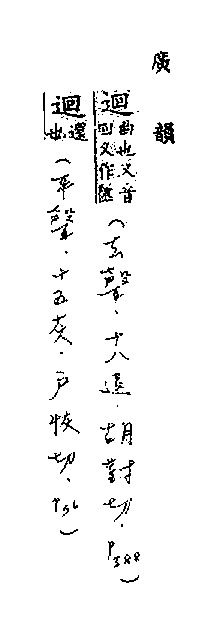 廣韻
迴 曲也又音回又作（去聲．十八隊．胡對切．P388）
迴 還也（平聲．十五灰．戶恢切．P96）